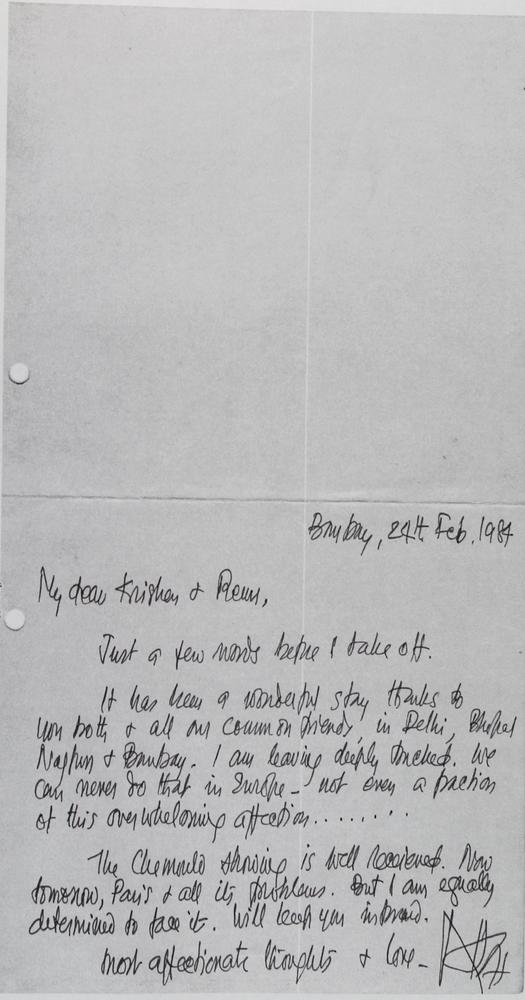 Bombay, 24th Feb. 1984
My dear Krishen & Renu,
Just a few words before I take off.
It has been a wonderful stay thanks to
you both & all our common friends, in Delhi, Bhopal
Nagpur & Bombay. I am leaving deeply touched. We
can never do that in Europe – not even a fraction
of this overwhelming affection........
The Chemould showing is well received. Now
tomorrow, Paris & all its problems. But I am equally
determined to face it. Will keep you informed.
most affectionate thoughts & love –